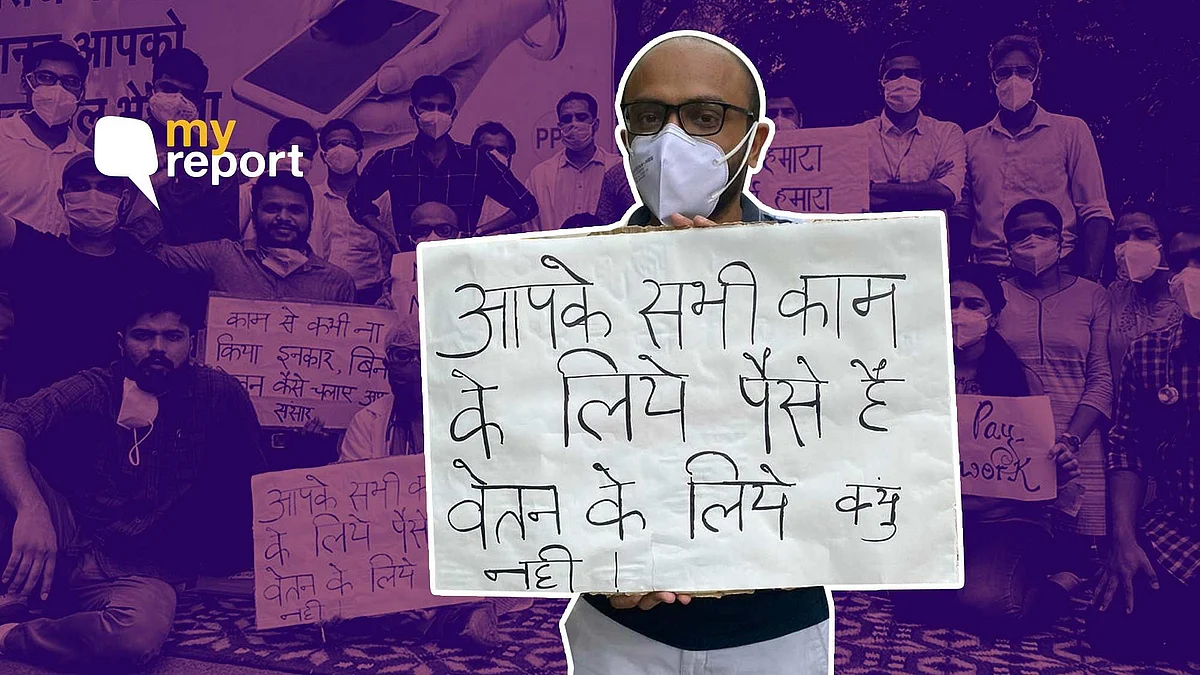 आपको
my
report
हमारा
हमारा
काम से कभी ना
किया इनकार,
कैसे चलाए
संसार
आपके सभी काम
के लिये पैसे है
वेतन के लिये क्यु
नही ।
आपके सभी
के लिये पैसे
वेतन के लिये
नही !
Pay-
work